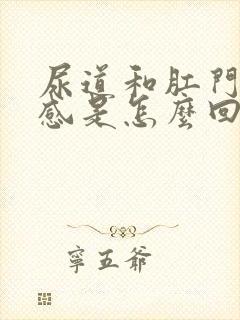 尿道和肛門
感是怎麼回
寧五爺